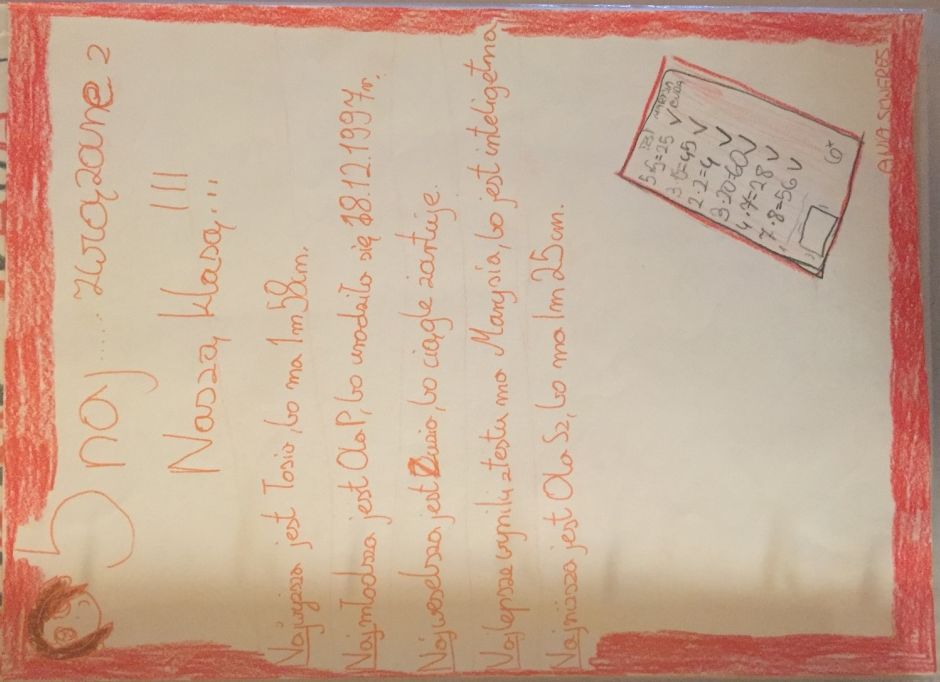 5 naj..... związane z
Naszą klasą...!!!
Najwyższa jest Tosia, bo ma 1m 58cm.
Najmłodsza jest Ola P, bo urodziła się 18.12.1997r.
Najweselsza jest Zuzia, bo ciągle żartuje.
Najlepsze wyniki z testu ma Marysia, bo jest inteligętna
Najniższa jest Ola Sz, bo ma 1m 25cm.
TEST
5·5=25 V
3·15=45 V
2·2=4 V
3·20=60 V
4·7=28 V
7·8=56 V
6+